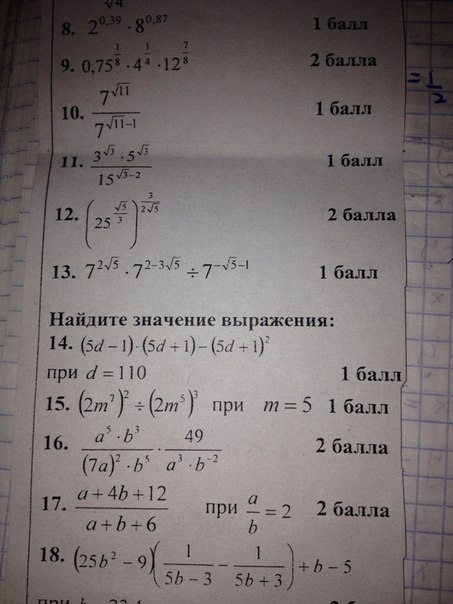 √4
8. 2^{0,39} · 8^{0,87} 1 балл
9. 0,75^{\frac{1}{8}} · 4^{\frac{1}{4}} · 12^{\frac{7}{8}} 2 балла
10. \frac{7^{√11}}{7^{√11-1}} 1 балл
11. \frac{3^{√3} · 5^{√3}}{15^{√3-2}} 1 балл
12. (25^{\frac{√5}{3}})^{\frac{3}{2√5}} 2 балла
13. 7^{2√5} · 7^{2-3√5} ÷ 7^{-√5-1} 1 балл
Найдите значение выражения:
14. (5d-1)·(5d+1)-(5d+1)^2
при d = 110 1 балл
15. (2m^7)^2 ÷ (2m^5)^3 при m = 5 1 балл
16. \frac{a^5 · b^3}{(7a)^2 · b^5} · \frac{49}{a^3 · b^{-2}} 2 балла
17. \frac{a+4b+12}{a+b+6} при \frac{a}{b} = 2 2 балла
18. (25b^2 - 9)(\frac{1}{5b-3} - \frac{1}{5b+3}) + b - 5
= \frac{1}{2}